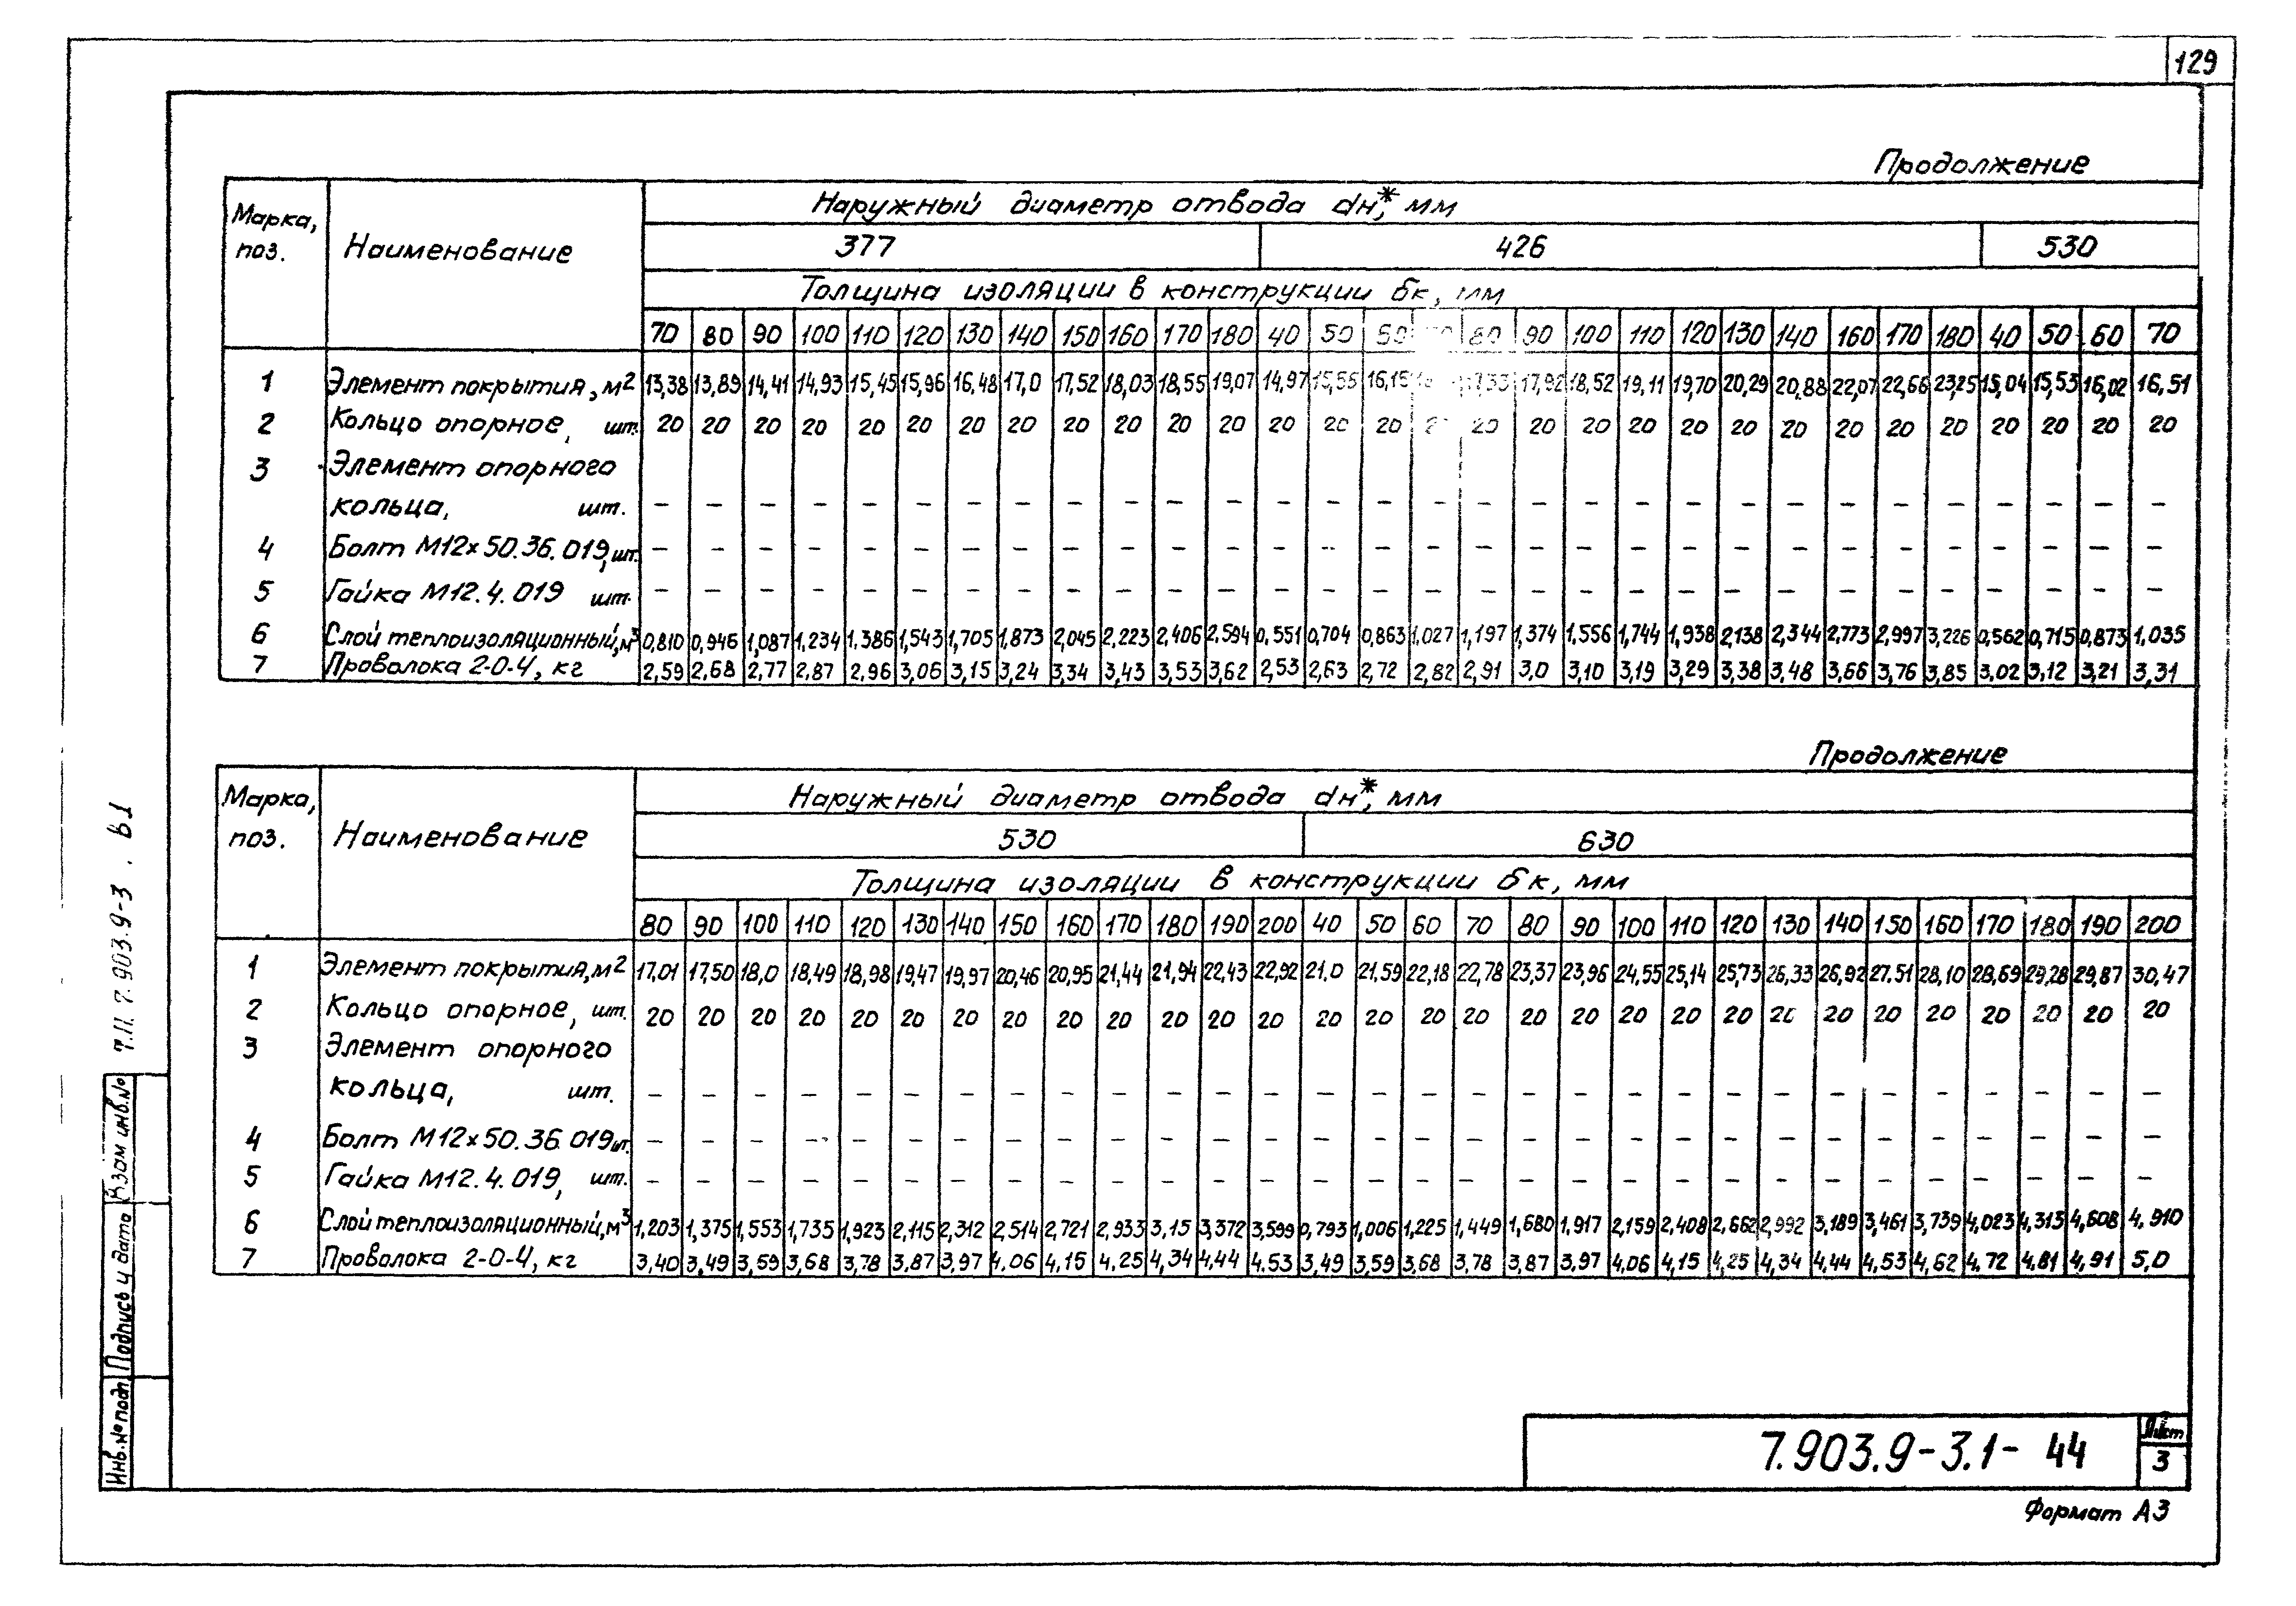 129
Продолжение
Марка, поз. Наименование Наружный диаметр отвода dн*, мм
377 426 530
Толщина изоляции в конструкции δк, мм
70 80 90 100 110 120 130 140 150 160 170 180 40 50 60 80 90 100 110 120 130 140 160 170 180 40 50 60 70
1 Элемент покрытия, м2 13,38 13,89 14,41 14,93 15,45 15,96 16,48 17,0 17,52 18,03 18,55 19,07 14,97 15,55 16,15 17,92 18,52 19,11 19,70 20,29 20,88 22,07 22,66 23,25 15,04 15,53 16,02 16,51
2 Кольцо опорное, шт. 20 20 20 20 20 20 20 20 20 20 20 20 20 20 20 20 20 20 20 20 20 20 20 20 20 20 20 20 20
3 Элемент опорного
кольца, шт. – – – – – – – – – – – – – – – – – – – – – – – – – – – – – –
4 Болт М12×50.36.019, шт. – – – – – – – – – – – – – – – – – – – – – – – – – – – – – –
5 Гайка М12.4.019 шт. – – – – – – – – – – – – – – – – – – – – – – – – – – – – – –
6 Слой теплоизоляционный, м3 0,810 0,946 1,087 1,234 1,386 1,543 1,705 1,873 2,045 2,223 2,406 2,594 0,551 0,704 0,863 1,027 1,197 1,374 1,556 1,744 1,938 2,138 2,344 2,773 2,997 3,226 0,562 0,715 0,873 1,035
7 Проволока 2-0-4, кг 2,59 2,68 2,77 2,87 2,96 3,06 3,15 3,24 3,34 3,43 3,53 3,62 2,53 2,63 2,72 2,82 2,91 3,0 3,10 3,19 3,29 3,38 3,48 3,66 3,76 3,85 3,02 3,12 3,21 3,31
Продолжение
Марка, поз. Наименование Наружный диаметр отвода dн*, мм
530 630
Толщина изоляции в конструкции δк, мм
80 90 100 110 120 130 140 150 160 170 180 190 200 40 50 60 70 80 90 100 110 120 130 140 150 160 170 180 190 200
1 Элемент покрытия, м2 17,01 17,50 18,0 18,49 18,98 19,47 19,97 20,46 20,95 21,44 21,94 22,43 22,92 21,0 21,59 22,18 22,78 23,37 23,96 24,55 25,14 25,73 26,33 26,92 27,51 28,10 28,69 29,28 29,87 30,47
2 Кольцо опорное, шт. 20 20 20 20 20 20 20 20 20 20 20 20 20 20 20 20 20 20 20 20 20 20 20 20 20 20 20 20 20 20
3 Элемент опорного
кольца, шт. – – – – – – – – – – – – – – – – – – – – – – – – – – – – – –
4 Болт М12×50.36.019 шт. – – – – – – – – – – – – – – – – – – – – – – – – – – – – – –
5 Гайка М12.4.019, шт. – – – – – – – – – – – – – – – – – – – – – – – – – – – – – –
6 Слой теплоизоляционный, м3 1,203 1,375 1,553 1,735 1,923 2,115 2,312 2,514 2,721 2,933 3,15 3,372 3,599 0,793 1,006 1,225 1,449 1,680 1,917 2,159 2,408 2,662 2,992 3,189 3,461 3,739 4,023 4,313 4,608 4,910
7 Проволока 2-0-4, кг 3,40 3,49 3,59 3,68 3,78 3,87 3,97 4,06 4,15 4,25 4,34 4,44 4,53 3,49 3,59 3,68 3,78 3,87 3,97 4,06 4,15 4,25 4,34 4,44 4,53 4,62 4,72 4,81 4,91 5,0
Т.П. 7.903.9-3. в1
Инв.№ подл. Подпись и дата Взам инв.№
7.903.9-3.1-44
Лист
3
Формат А3